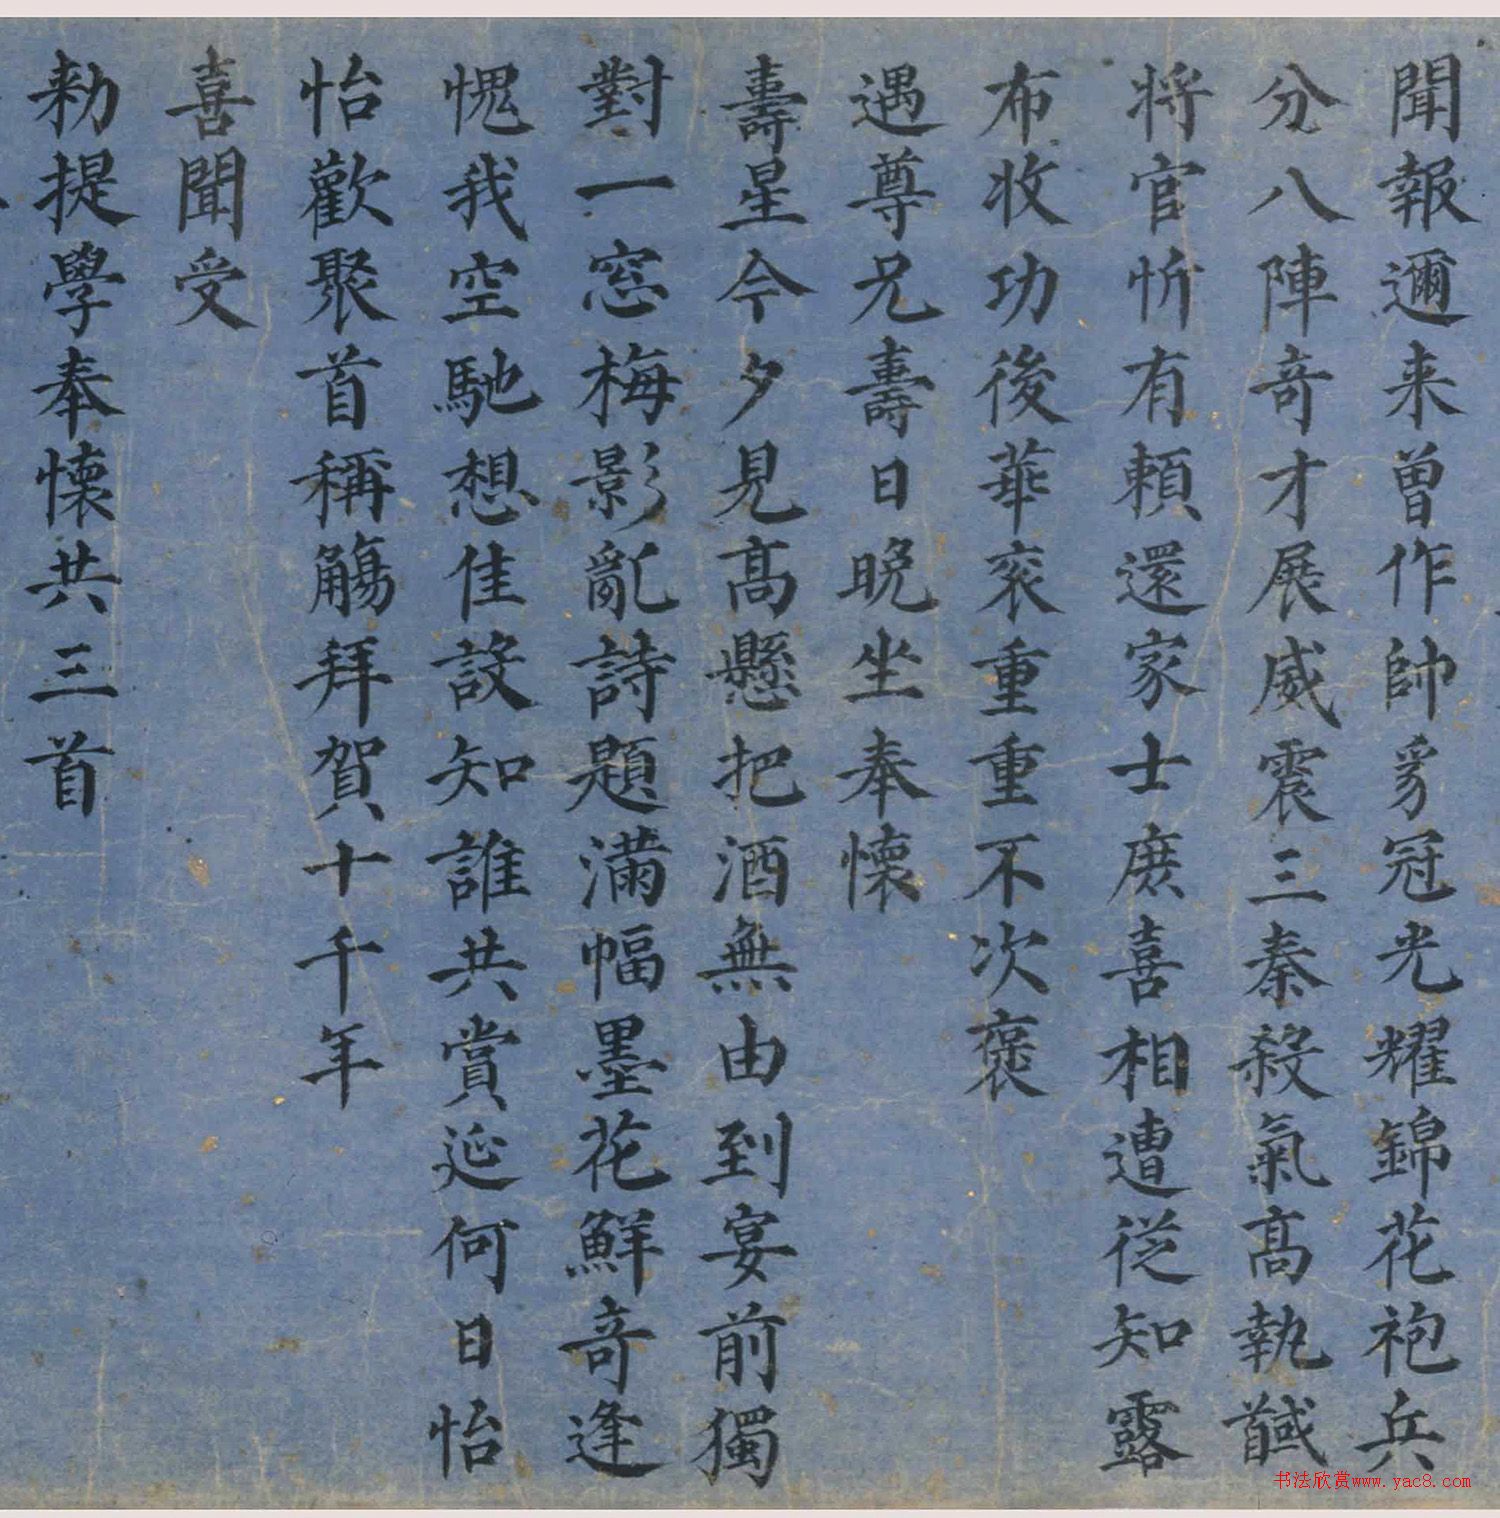 聞報邇来曾作帥豸冠光耀錦花袍兵
分八陣竒才展威震三秦殺氣髙執馘
将官忻有頼還家士庶喜相遭從知露
布收功後華衮重重不次褒
遇尊兄壽日晚坐奉懷
壽星今夕見髙懸把酒無由到宴前獨
對一窓梅影亂詩題滿幅墨花鮮竒逢
愧我空馳想佳設知誰共賞延何日怡
怡歡聚首稱觴拜賀十千年
喜聞受
勑提學奉懷共三首
书法欣赏www.yac8.com